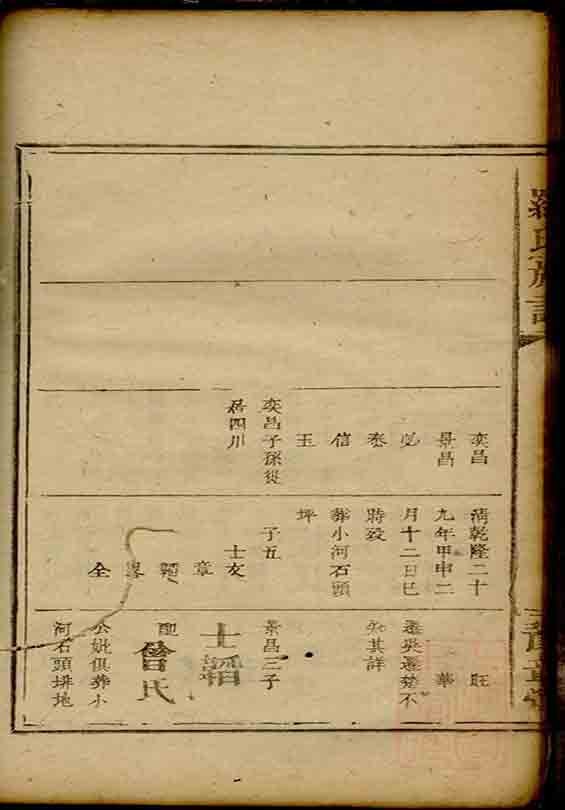 羅氏族譜
豫章堂
奕昌
景昌
必
泰
信
玉
奕昌子孫從
居四川
清乾隆二十
九年甲申二
月十二日巳
時歿
葬小河石頭
坪
子五
士文
章
韜
畧
全
旺
華
遷吳遷楚不
知其詳
景昌三子
士韜
配曾氏
公妣俱葬小
河石頭地